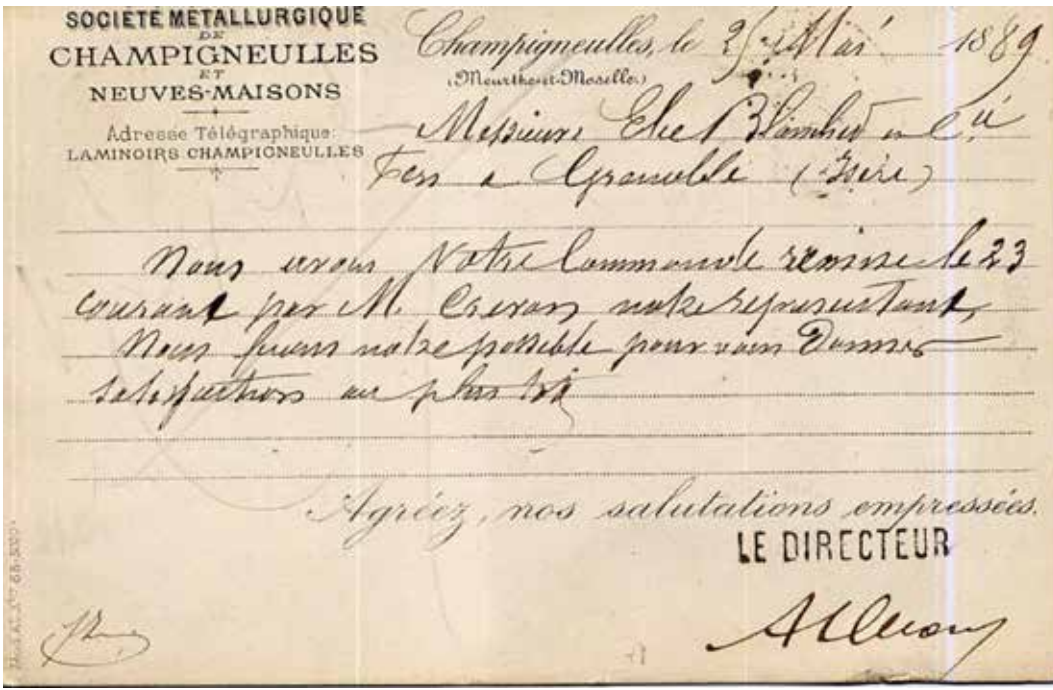 SOCIÉTÉ METALLURGIQUE
DE
CHAMPIGNEULLES
ET
NEUVES-MAISONS
Adresse Télégraphique:
LAMINOIRS CHAMPIGNEULLES
Champigneulles, le 25 Mai 1889
(Meurthe-et-Moselle.)
Messieurs Elie Blanchet et Cie
Fers a Grenoble (Isère)
Nous avons Votre Commande remise le 23
courant par M. notre représentant,
Nous ferons notre possible pour vous Donner
satisfaction au plus tôt
Agréez, nos salutations empressées.
LE DIRECTEUR